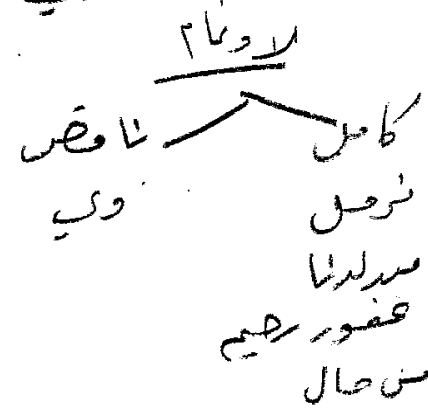 لادغام
كامل ناقص
نرمل وي
من لدنا
غفور رحيم
من مال